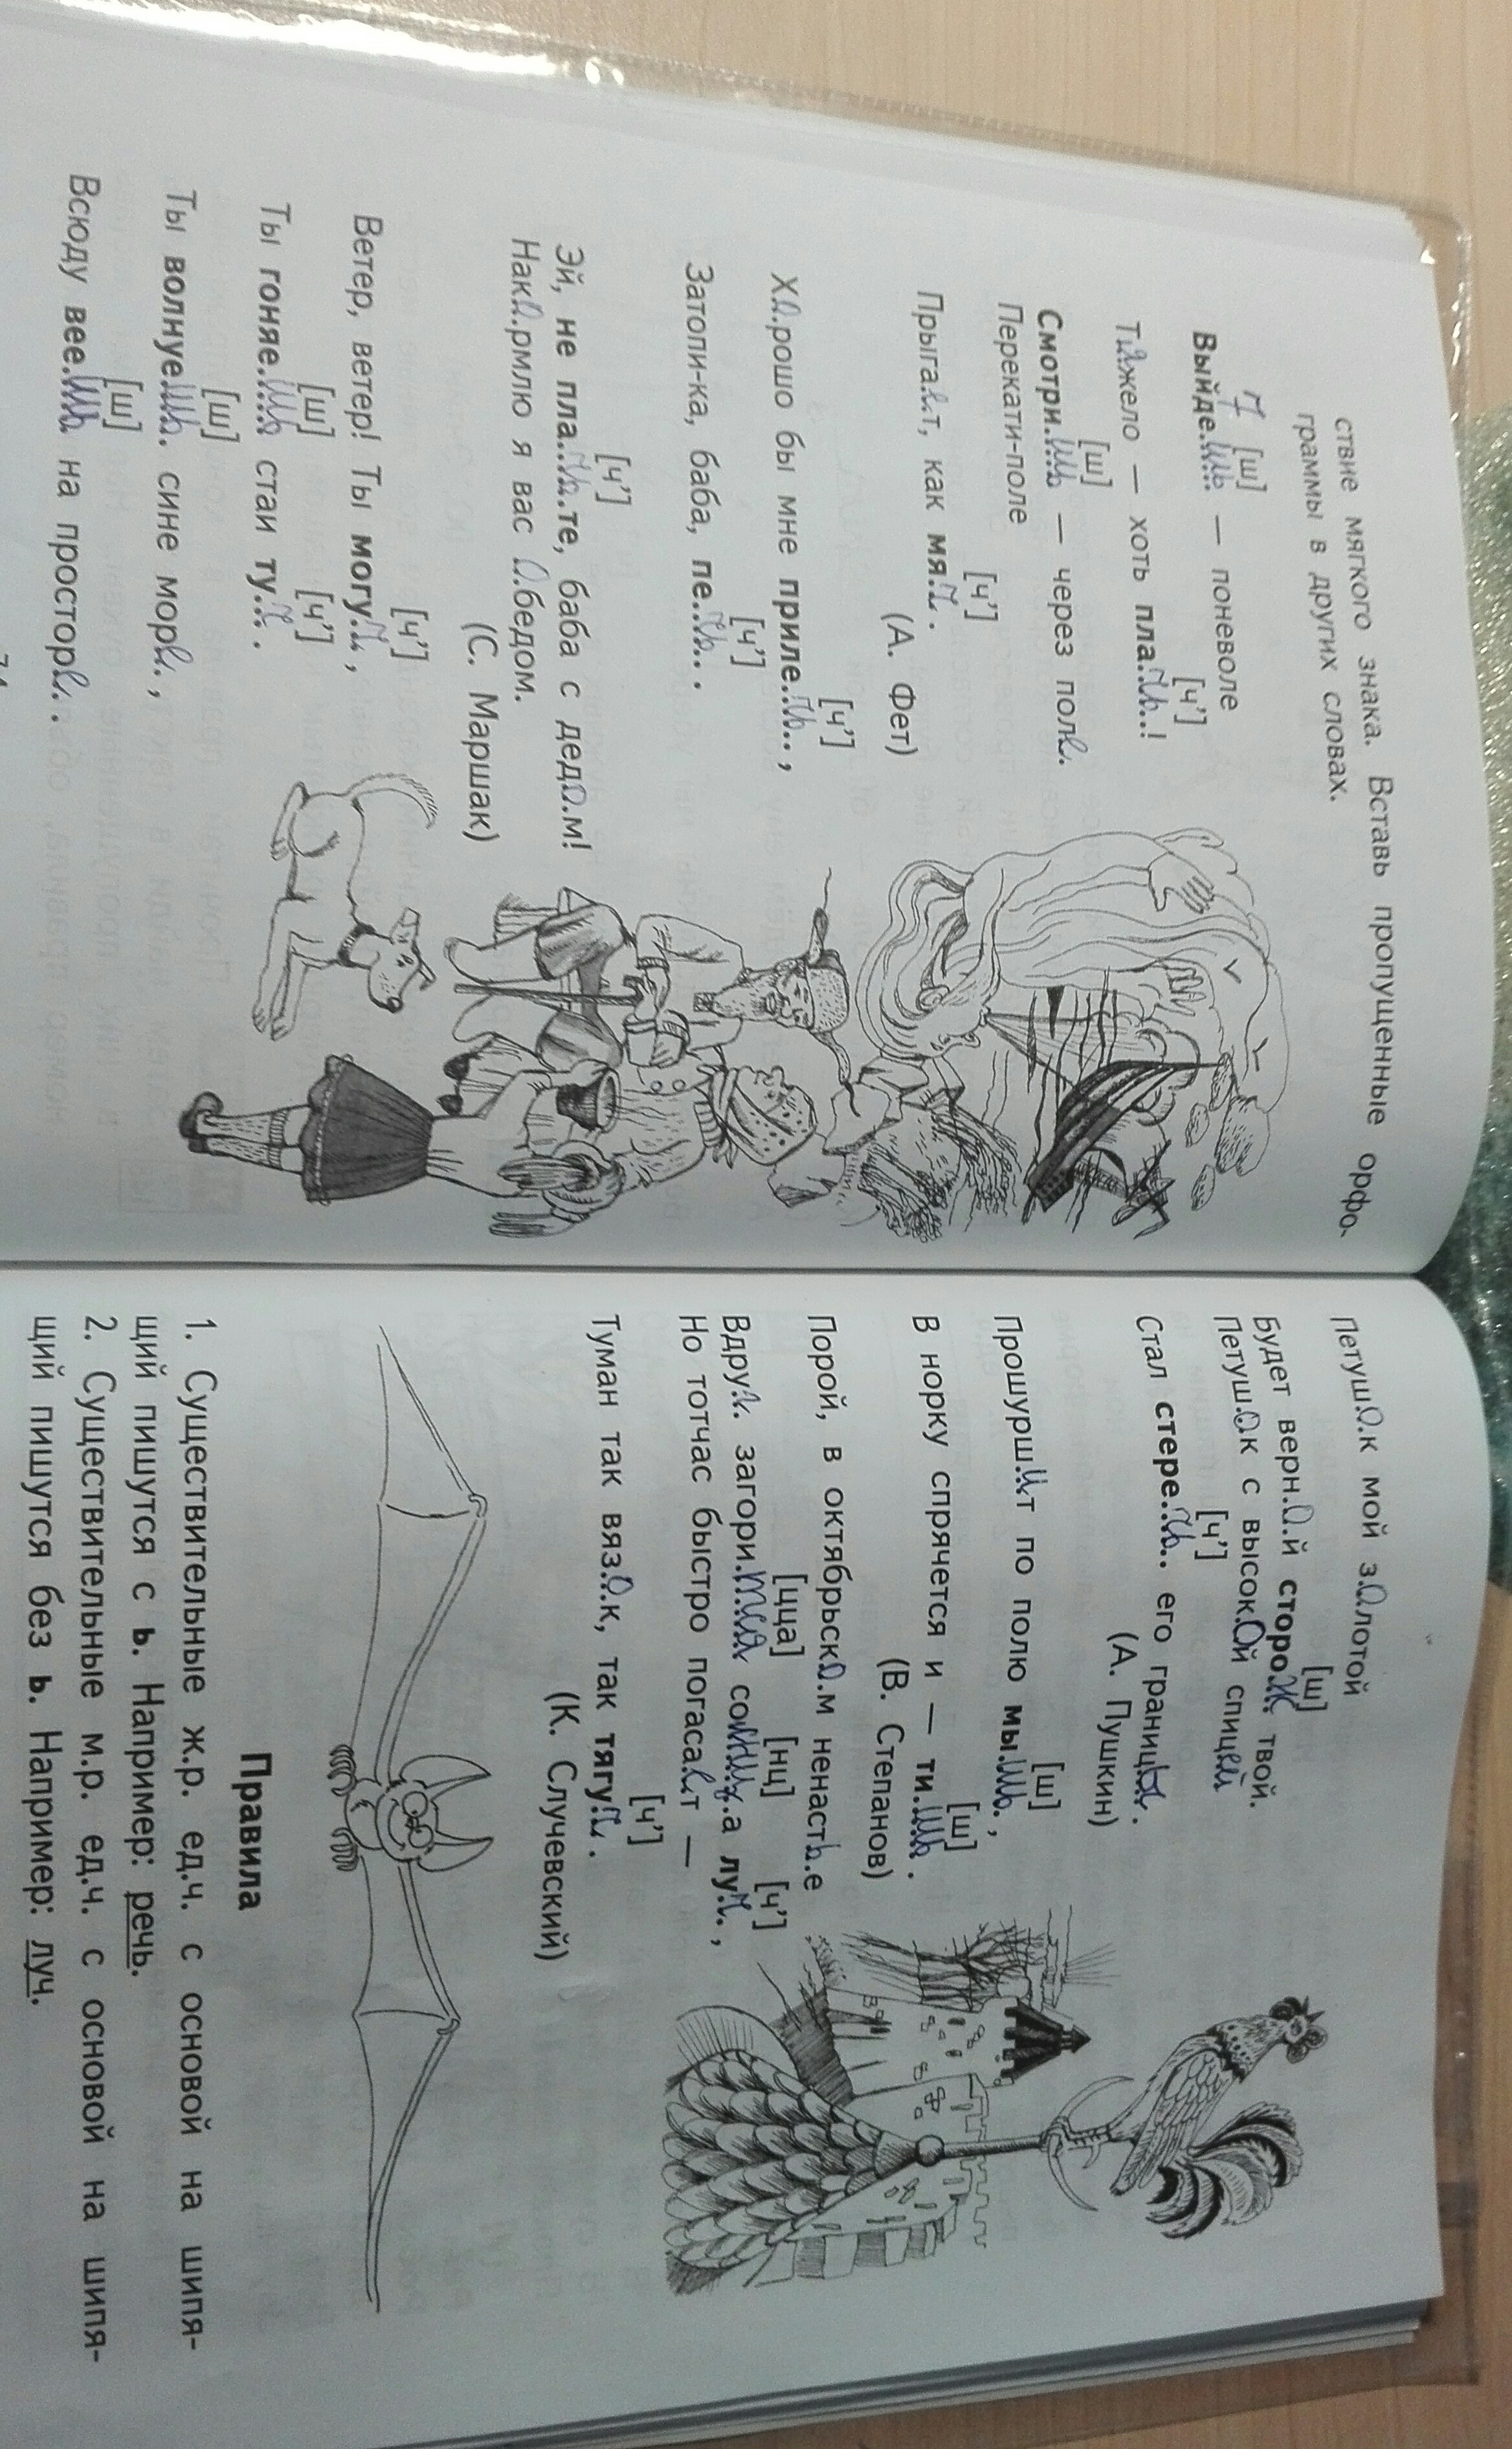 ствие мягкого знака. Вставь пропущенные орфо-
граммы в других словах.
7 [ш]
Выйде.шь. — поневоле
[ч']
Тяжело — хоть пла.чь..!
[ш]
Смотри.шь — через поле.
Перекати-поле
[ч']
Прыга.е.т, как мя.ч.
(А. Фет)
[ч']
Хо.рошо бы мне приле.чь..,
[ч']
Затопи-ка, баба, пе..чь...
[ч']
Эй, не пла..чь..те, баба с дедо.м!
Нако.рмлю я вас о.бедом.
(С. Маршак)
[ч']
Ветер, ветер! Ты могу.ч.,
[ш] [ч']
Ты гоняе.шь стаи ту.ч.
[ш]
Ты волнуе.шь. сине море.,
[ш]
Всюду вее.шь на просторе..
Петуш.о.к мой з.олотой
[ш]
Будет верн.о.й сторо.ж твой.
Петуш.о.к с высок.ой спицей
[ч']
Стал стере..чь.. его границы.
(А. Пушкин)
[ш]
Прошурш.и.т по полю мы.шь.,
[ш]
В норку спрячется и — ти.шь.
(В. Степанов)
Порой, в октябрьско.м ненасть.е
[цца] [нц] [ч']
Вдруг. загори.тся солнц.а лу.ч.,
Но тотчас быстро погаса.е.т —
[ч']
Туман так вяз.о.к, так тягу.ч.
(К. Случевский)
Правила
1. Существительные ж.р. ед.ч. с основой на шипя-
щий пишутся с ь. Например: речь.
2. Существительные м.р. ед.ч. с основой на шипя-
щий пишутся без ь. Например: луч.